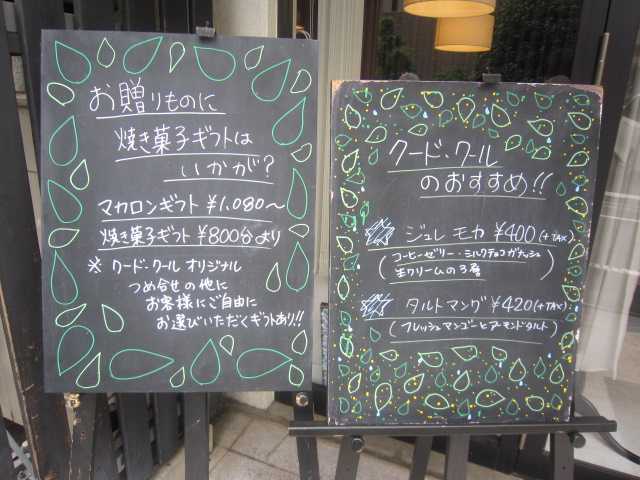 お贈りものに
焼き菓子ギフトは
いかが?
マカロンギフト ¥1,080〜
焼き菓子ギフト ¥800台より
※ クード・クール オリジナル
つめ合せの他に
お客様にご自由に
お選びいただくギフトあり!!
クード・クール
のおすすめ!!
ジュレ モカ ¥400(+TAX)
(コーヒーゼリー・ミルクチョコガナッシュ
生クリームの3層)
タルトマング ¥420(+TAX)
(フレッシュマンゴーとアーモンドタルト)